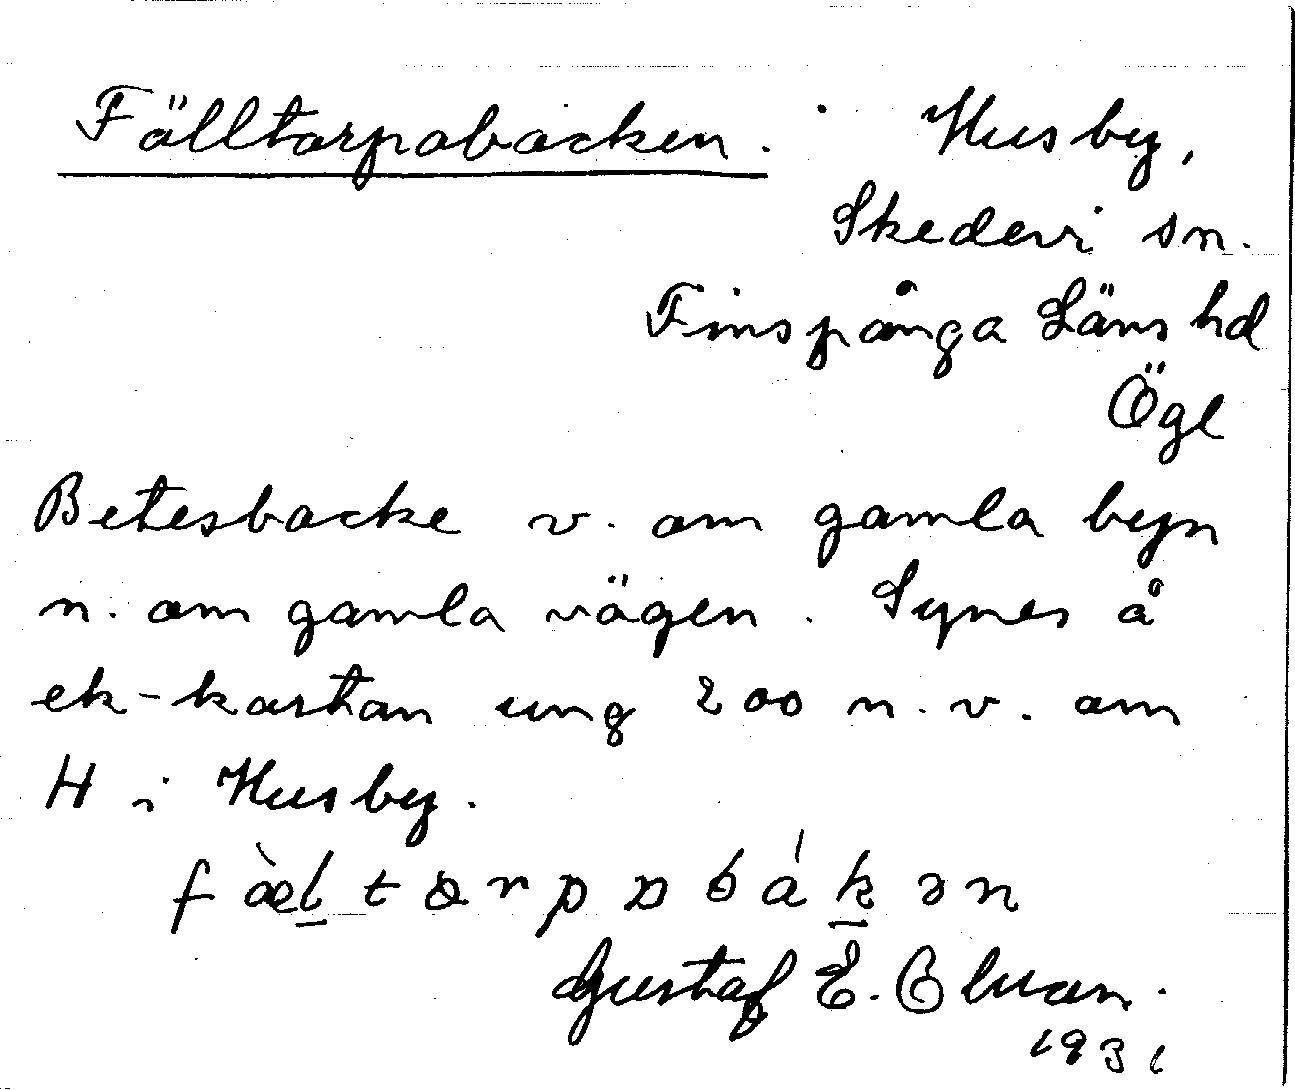 Fälltorpabacken. Husby,
Skedevi sn.
Finspånga Läns hd
Ögl
Betesbacke v. om gamla byn
n. om gamla vägen. Synes å
ek-kartan ung 200 n.v. om
H i Husby.
Gustaf E.
1931